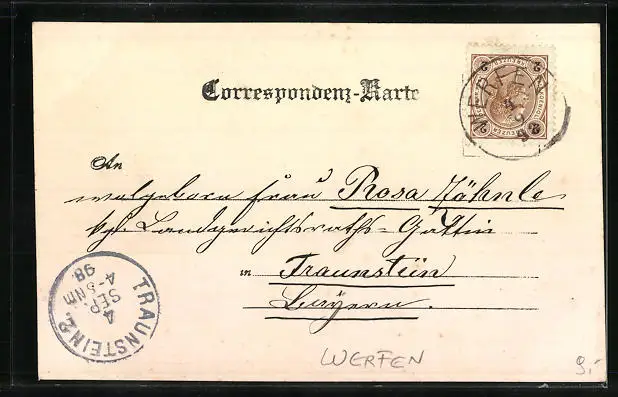 Correspondenz-Karte
WERFEN
2 2
KREUZER
2 2
An
wolgeborn Frau Rosa Jähnle
kgl. Landgerichtsraths-Gattin
in Traunstein
Bayern.
TRAUNSTEIN 2.
4
SEP.
4-5 Nm
98.
WERFEN
9,-